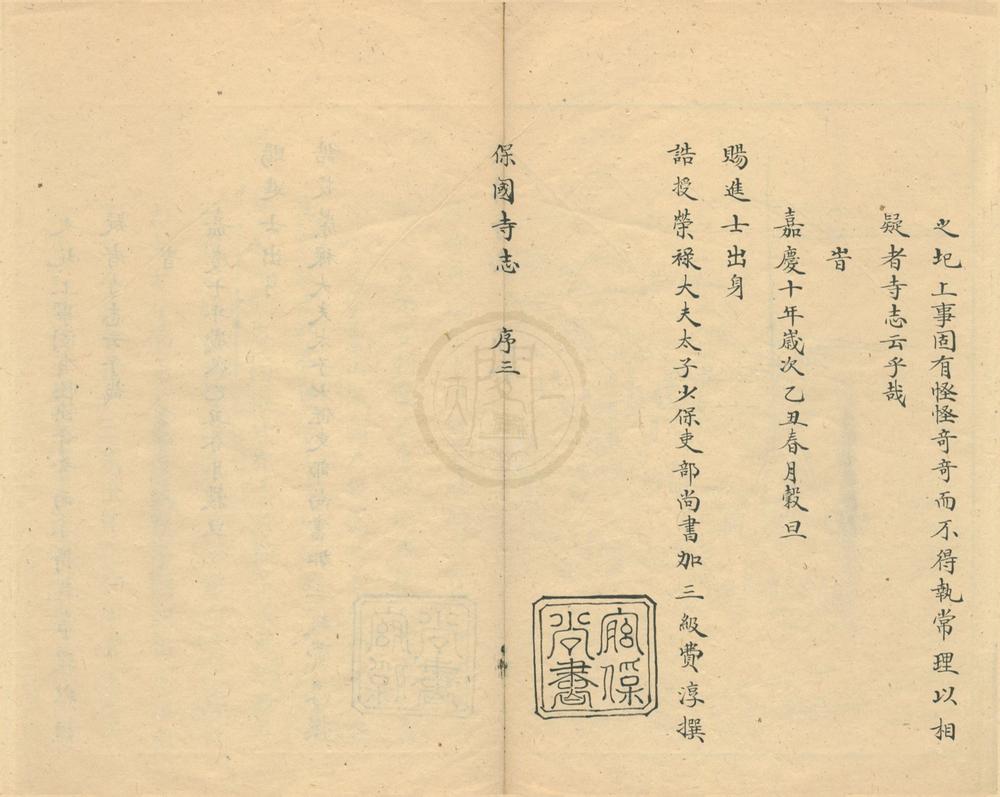 之圯上事固有怪怪奇奇而不得執常理以相
疑者寺志云乎哉
旹
嘉慶十年嵗次乙丑春月穀旦
賜進士出身
誥授榮祿大夫太子少保吏部尚書加三級費淳撰
宮保
尚書
保國寺志 序三